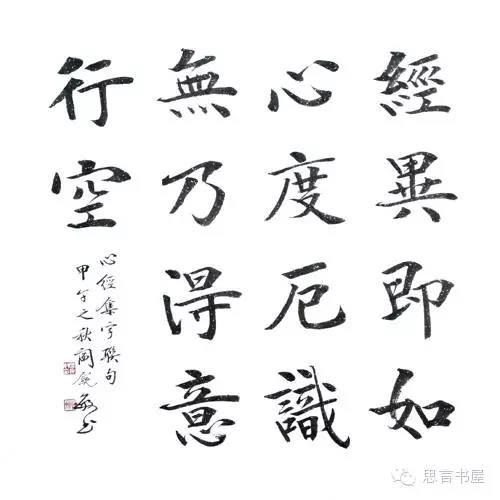 經異即如
心度厄識
無乃得意
行空
心經集字聯句
甲午之秋閻銳敏书
思言书屋